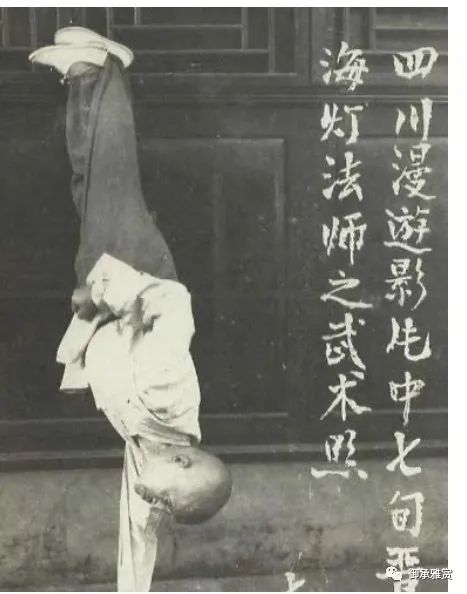 四川漫遊影片中七旬晋
海灯法师之武术照
御承雅赏